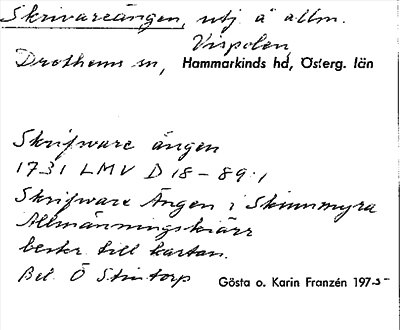 Skrivareängen, utj å allm.
Vispolen
Drothems sn, Hammarkinds hd, Österg. län
Skrifware ängen
1731 LMV D 18-89:1
Skrifware Ängen i Skinnmyra
Allmänningskiärr
beskr. till kartan.
Bel. Ö Stintorp
Gösta o. Karin Franzén 1975